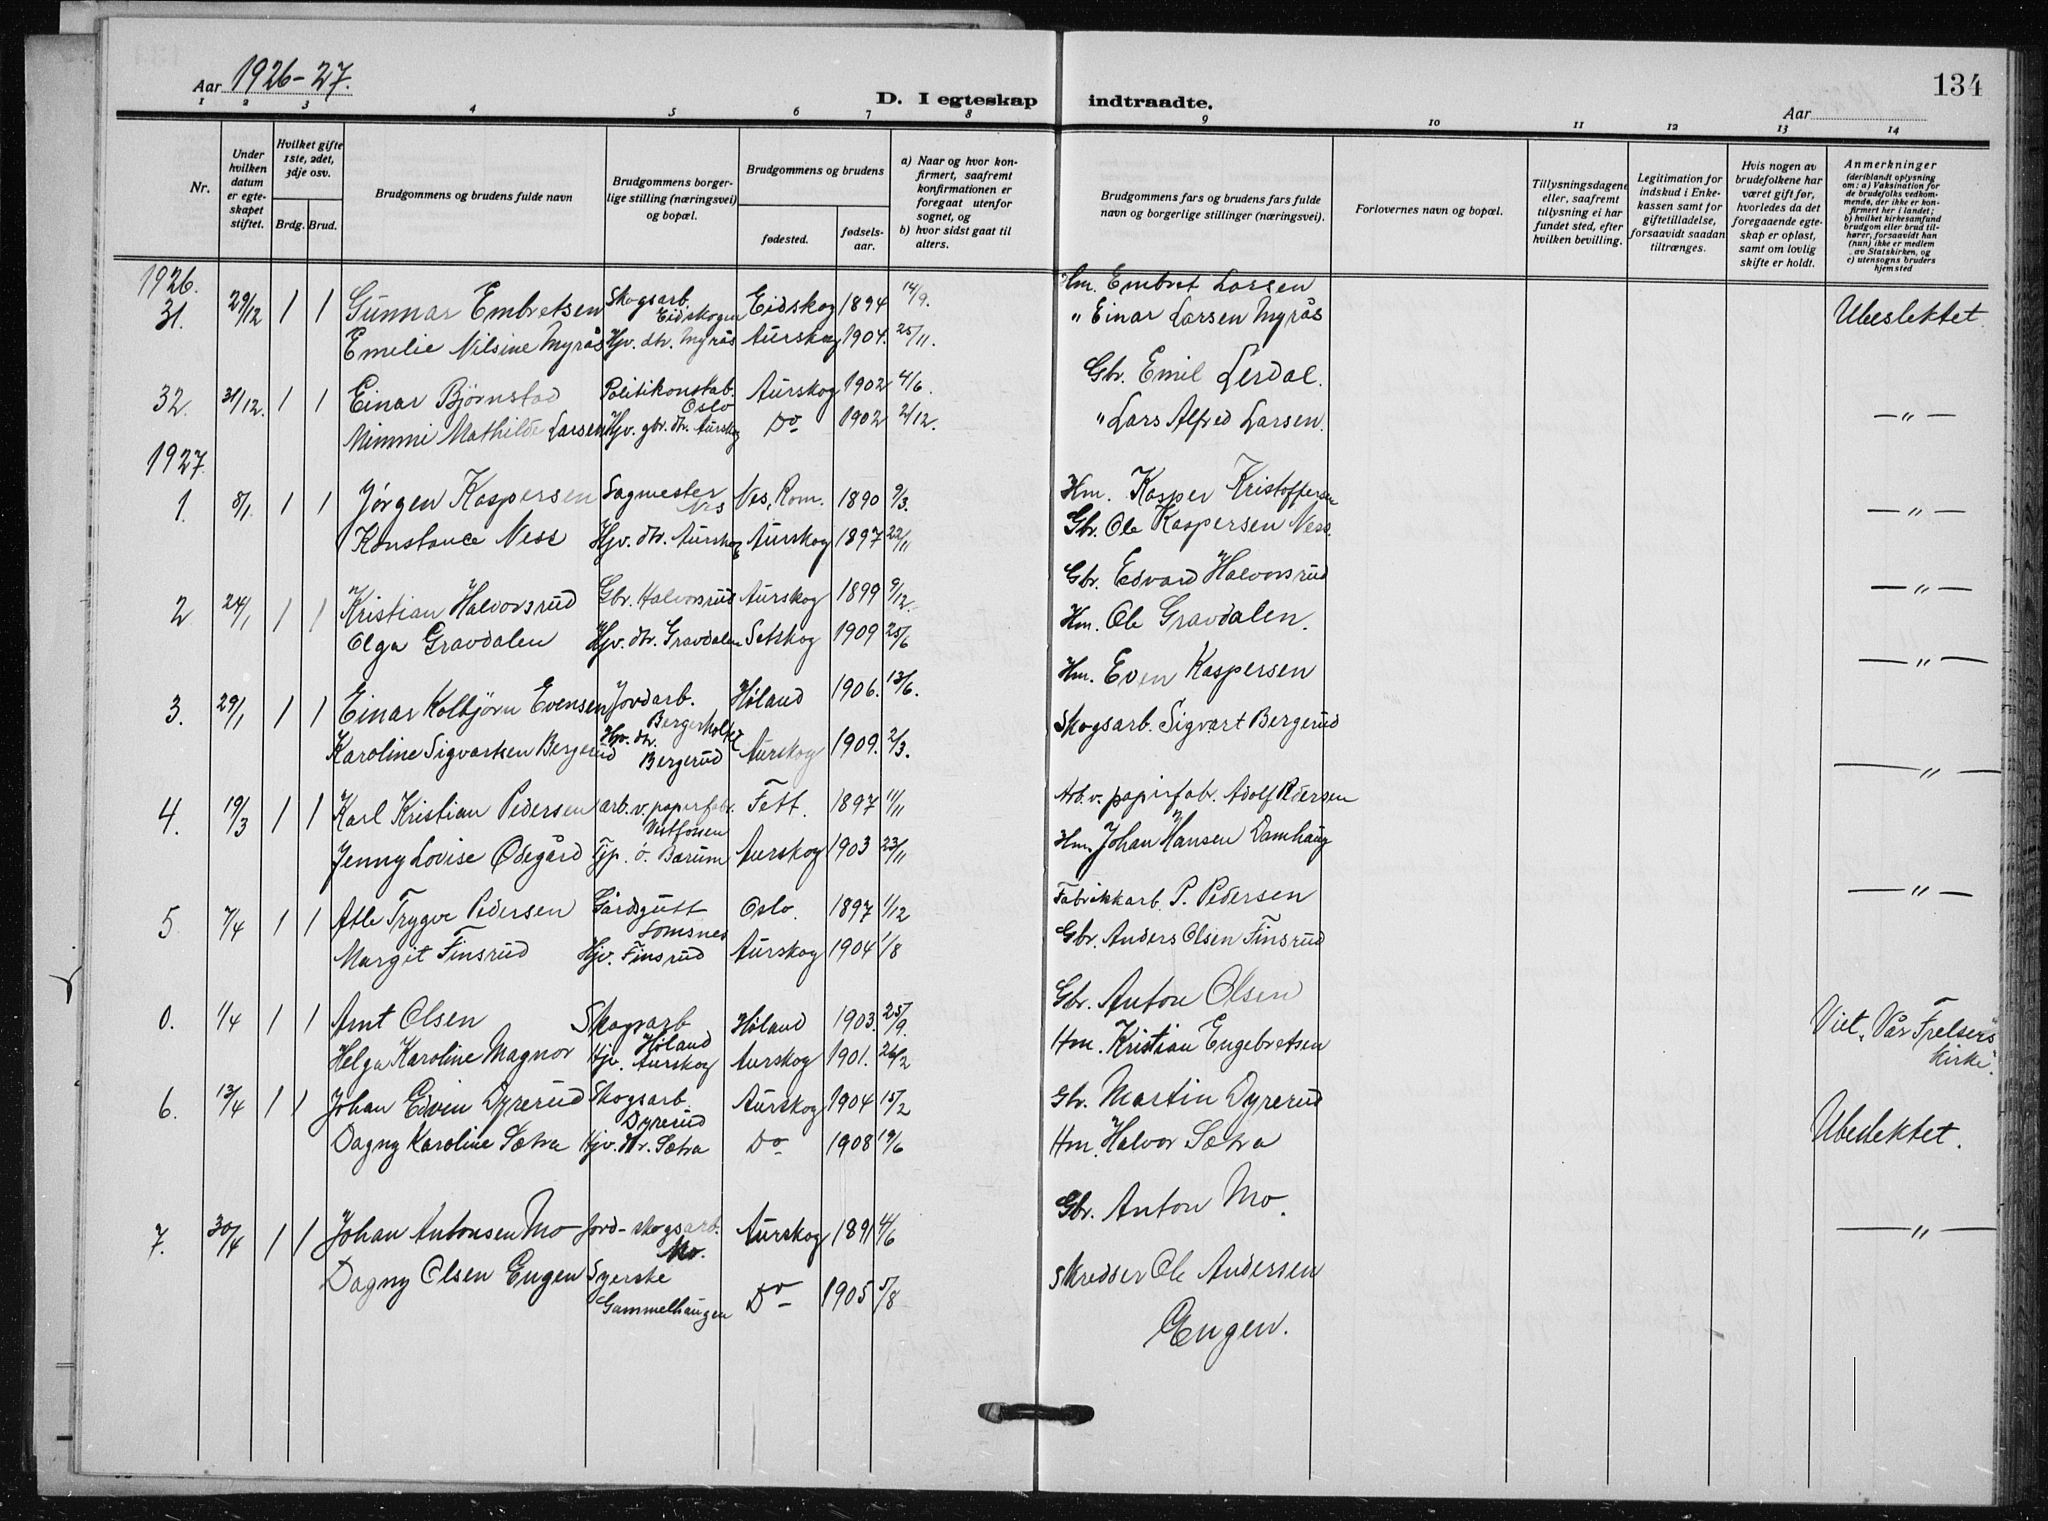 134
Aar 1926-27.
D. I egteskap indtraadte.
Aar
1 2 3 4 5 6 7 8 9 10 11 12 13 14
Nr.
Under hvilken datum er egte-skapet stiftet.
Hvilket gifte 1ste, 2det, 3dje osv.
Brdg. Brud.
Brudgommens og brudens fulde navn
Brudgommens borger-lige stilling (næringsvei) og bopæl.
Brudgommens og brudens
fødested.
fødsels-aar.
a) Naar og hvor kon-firmert, saafremt konfirmationen er foregaat utenfor sognet, og
b) hvor sidst gaat til alters.
Brudgommens fars og brudens fars fulde navn og borgerlige stillinger (næringsvei).
Forlovernes navn og bopæl.
Tillysningsdagene eller, saafremt tillysning ei har fundet sted, efter hvilken bevilling.
Legitimation for indskud i Enke-kassen samt for giftetilladelse, forsaavidt saadan tiltrænges.
Hvis nogen av brudefolkene har været gift før, hvorledes da det foregaaende egte-skap er opløst, samt om lovlig skifte er holdt.
Anmerkninger (deriblandt oplysning om: a) Vaksination for de brudefolks vedkom-mende, der ikke er kon-firmert her i landet; b) hvilket kirkesamfund brudgom eller brud til-hører, forsaavidt han (hun) ikke er medlem av Statskirken, og c) utensogns bruders hjemsted
1926.
31. 29/12 1 1 Gunnar Embretsen Skogsarb. Eidskogen Eidskog 1894 14/9. Hm. Embret Larsen Ubeslektet.
Emelie Nilsine Myrås Hjv. dtr. Myrås Aurskog 1904. 25/11. " Einar Larsen Myrås
32. 31/12. 1 1 Einar Bjørnstad Politikonstab. Oslo Aurskog 1902 4/6. Gbr. Emil Lerdal. — " —
Mimmi Mathilde Larsen Hjv. gbr. dtr. Aurskog Do 1902 2/12. " Lars Alfred Larsen.
1927.
1. 8/1. 1 1 Jørgen Kaspersen Sagmester Nes Nes, Rom. 1890 9/3. Hm. Kasper Kristoffersen — " —
Konstance Ness Hjv. dtr. Aurskog Aurskog 1897 22/11 Gbr. Ole Kaspersen Ness.
2 24/1 1 1 Kristian Halvorsrud Gbr. Halvorsrud Aurskog 1899 9/12. Gbr. Edvard Halvorsrud — " —
Olga Gravdalen Hjv. dtr. Gravdalen Setskog 1909 25/6 Hm. Ole Gravdalen.
3. 29/1 1 1 Einar Kolbjørn Evensen Jordarb. Høland 1906. 13/6. Hm. Even Kaspersen — " —
Karoline Sigvartsen Bergerud Hjv. dtr. Bergerud Aurskog 1909. 2/3. Skogsarb. Sigvart Bergerud
4. 19/3 1 1 Karl Kristian Pedersen arb. v. papirfabr. Vestfossen Fett. 1897 11/11 Arb. v. papirfabr. Adolf Pedersen — " —
Jenny Lovise Ødegård Tjp. ö. Bærum Aurskog 1903 23/11 Hm. Johan Hansen Damhaug
5 7/4 1 1 Atle Trygve Pedersen Gårdsgutt Lomsnes Oslo. 1897 1/12 Fabrikkarb. P. Pedersen — " —
Margit Finsrud Hjv. Finsrud Aurskog 1904 1/8 Gbr. Anders Olsen Finsrud
0. 1/4 1 1 Arnt Olsen Skogsarb Høland Høland 1903. 25/9. Gbr. Anton Olsen Viet "Vår Frelsers Kirke".
Helga Karoline Magnor Hjv. Aurskog Aurskog 1901. 26/2 Hm. Kristian Engebretsen
6. 13/4 1 1 Johan Edvin Dyrerud Skogsarb. Dyrerud Aurskog 1904 15/2 Gbr. Martin Dyrerud Ubeslektet.
Dagny Karoline Sætra Hjv. dtr. Sætra Do 1908 19/6 Hm. Halvor Sætra
7. 30/4 1 1 Johan Antonsen Mo Jord- skogsarb. Mo. Aurskog 1891 4/6 Gbr. Anton Mo. — " —
Dagny Olsen Eugen Syerske Gammelhaugen Do 1905 5/8 Skredder Ole Andersen
Eugen.